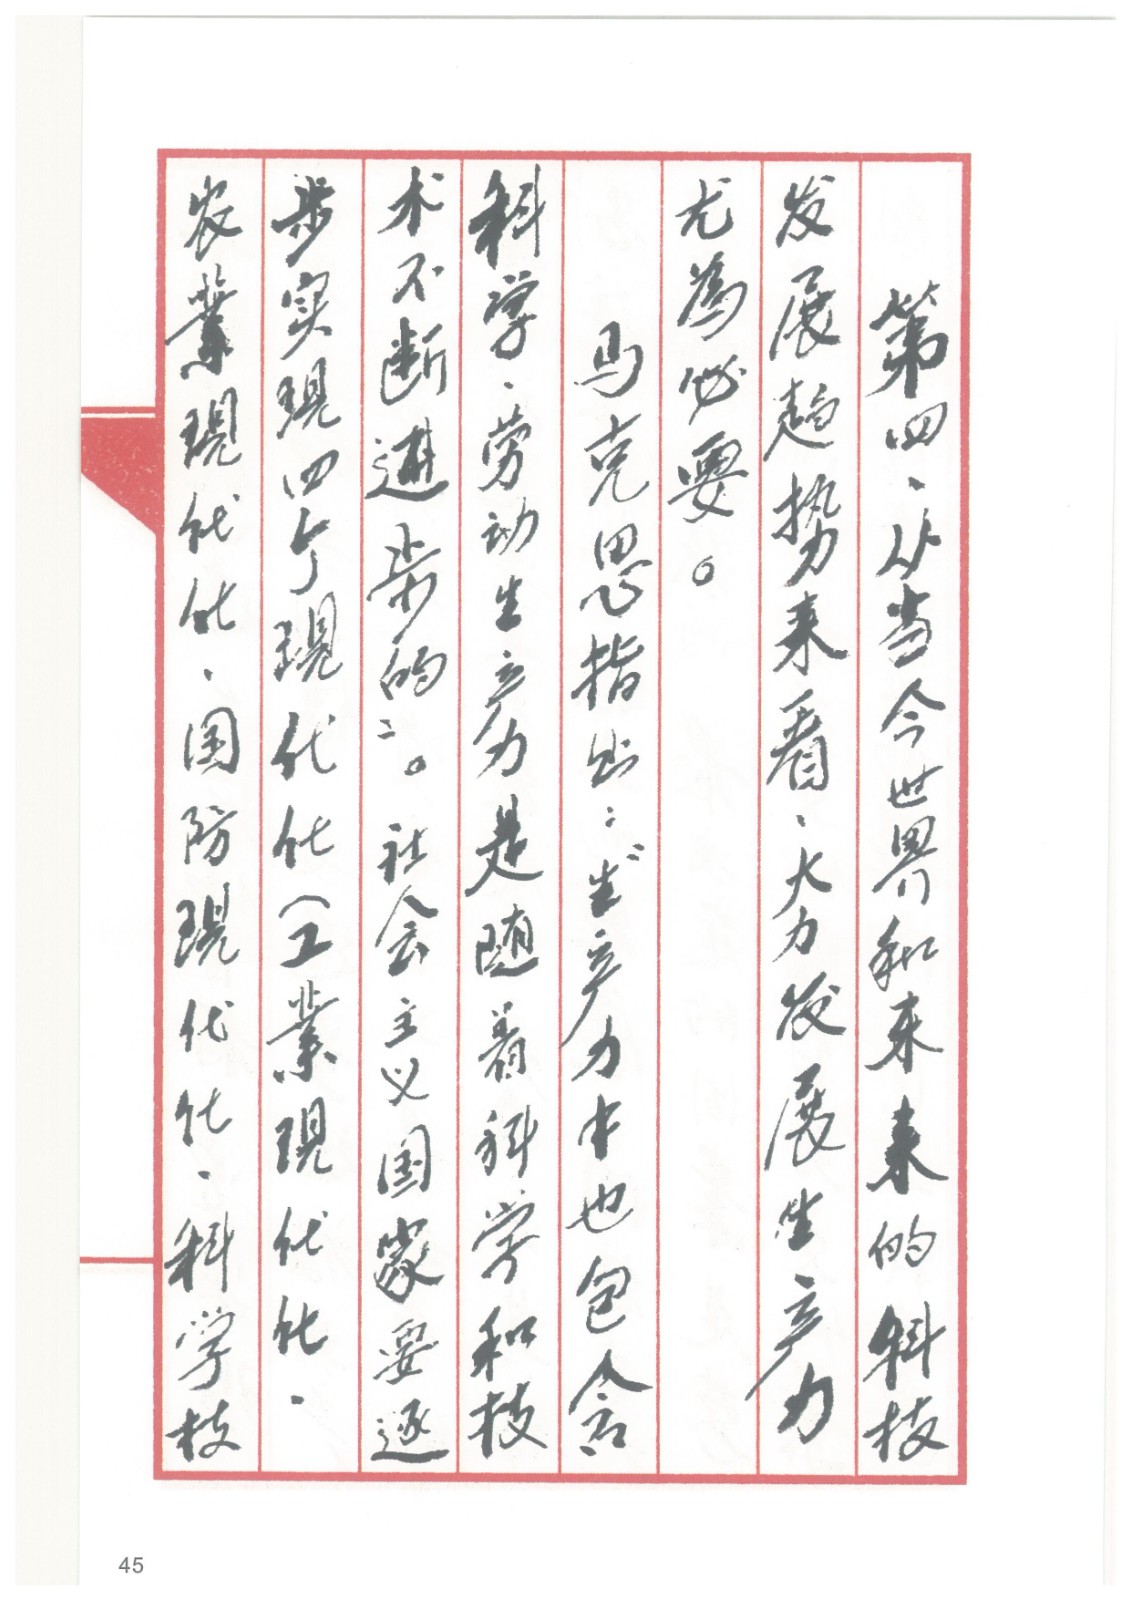 第四、从当今世界和未来的科技
发展趋势来看、大力发展生产力
尤為必要。
马克思指出："生产力中也包含
科学、劳动生产力是随着科学和技
术不断进步的"。社会主义国家要逐
步实現四个現代化(工業現代化、
农業現代化、国防現代化、科学技
45